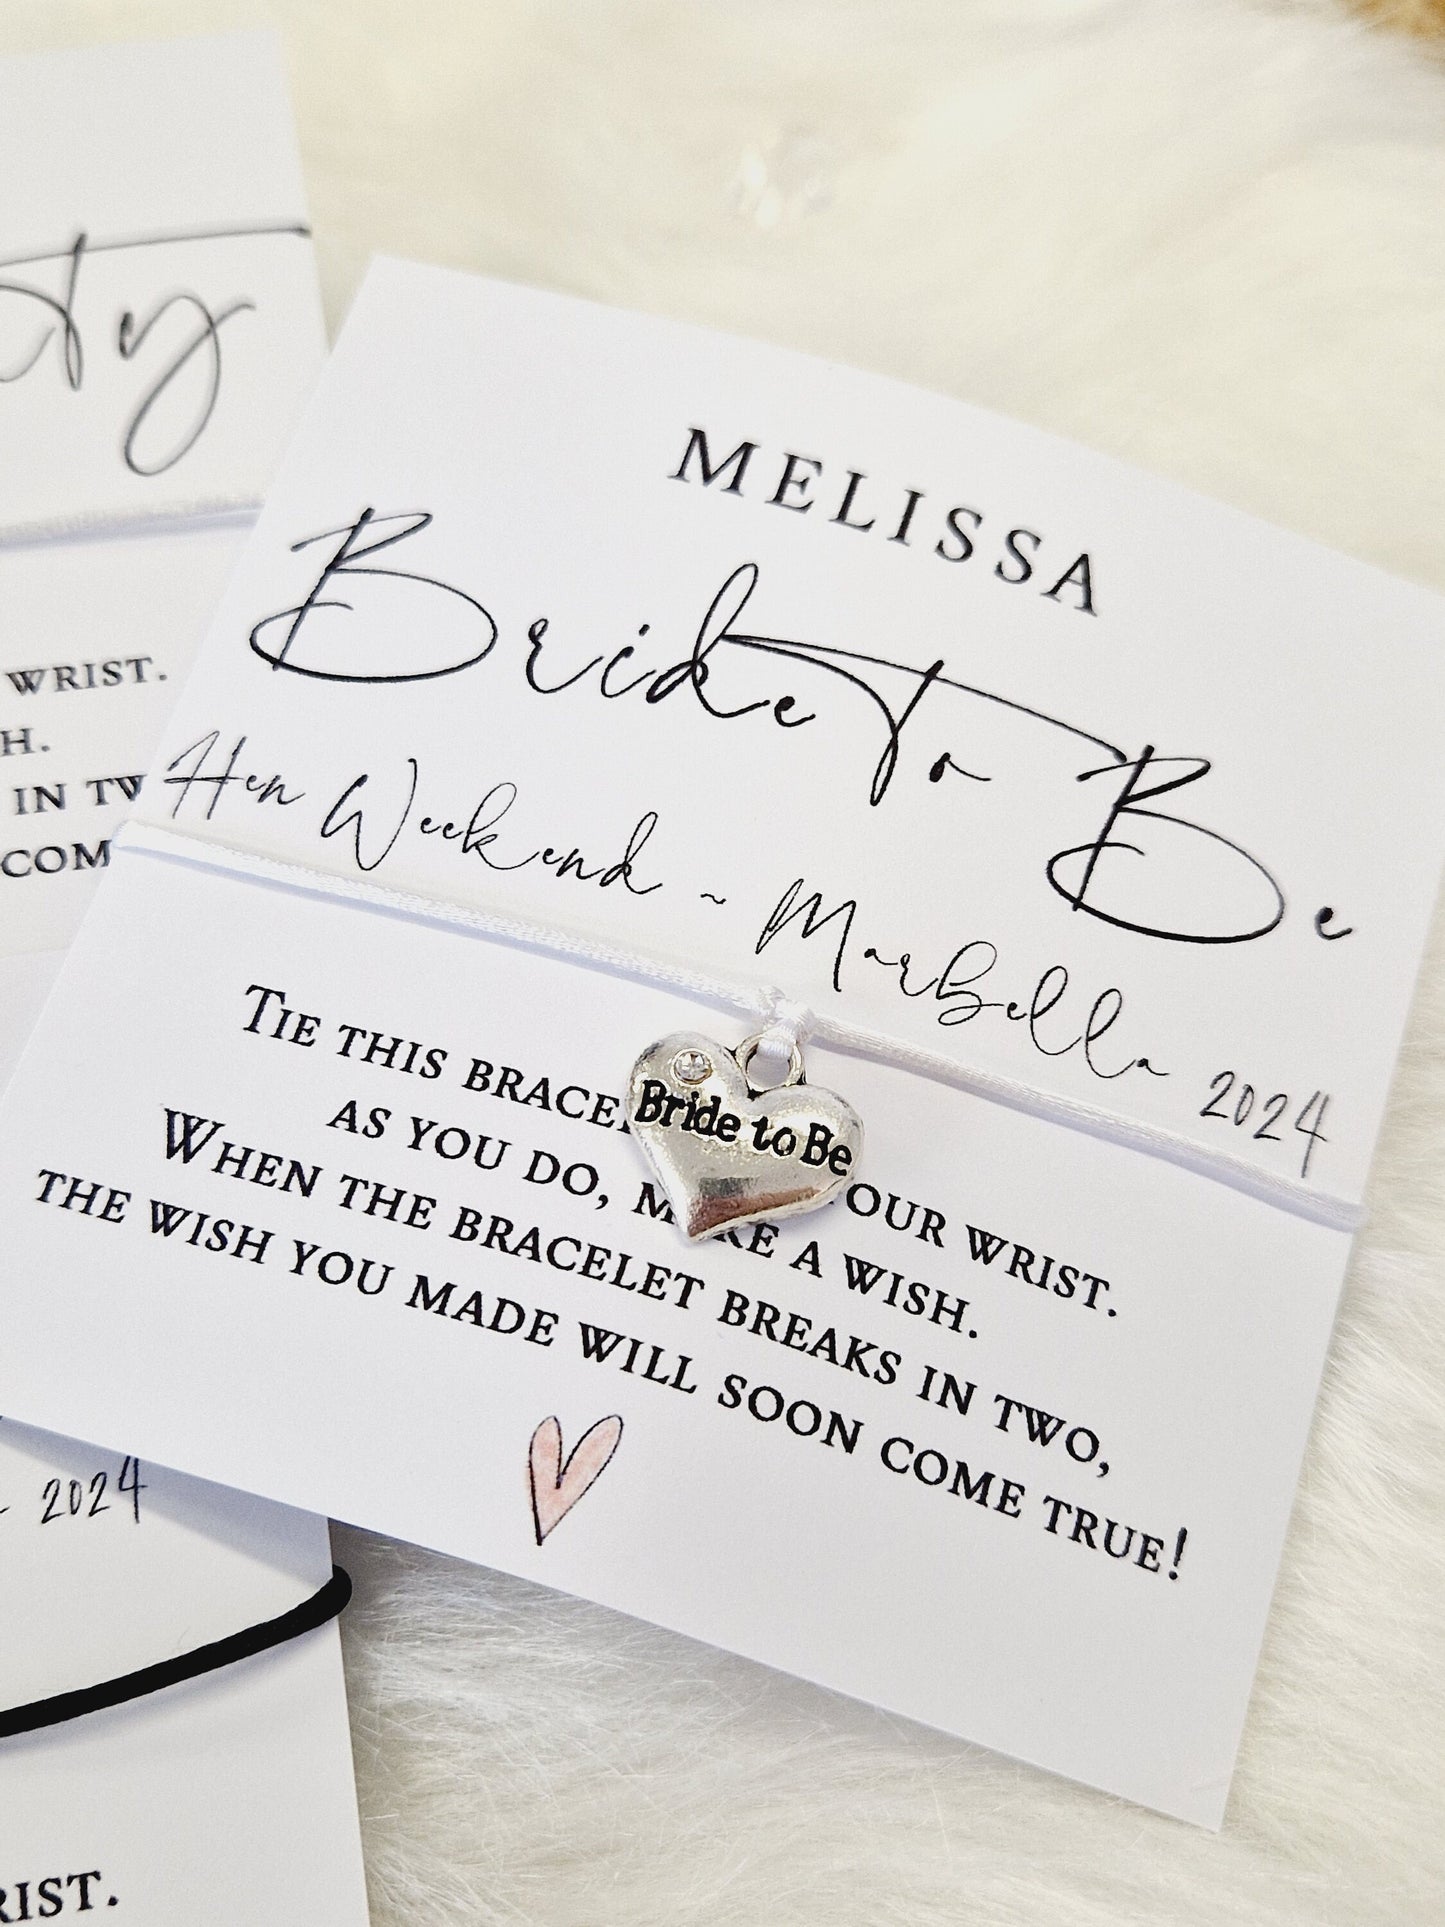 WRIST.
H.
IN TW
COM
MELISSA
Bride To Be
Hen Weekend ~ Marbella 2024
Bride to Be
TIE THIS BRACE OUR WRIST.
AS YOU DO, MAKE A WISH.
WHEN THE BRACELET BREAKS IN TWO,
THE WISH YOU MADE WILL SOON COME TRUE!
2024
RIST.